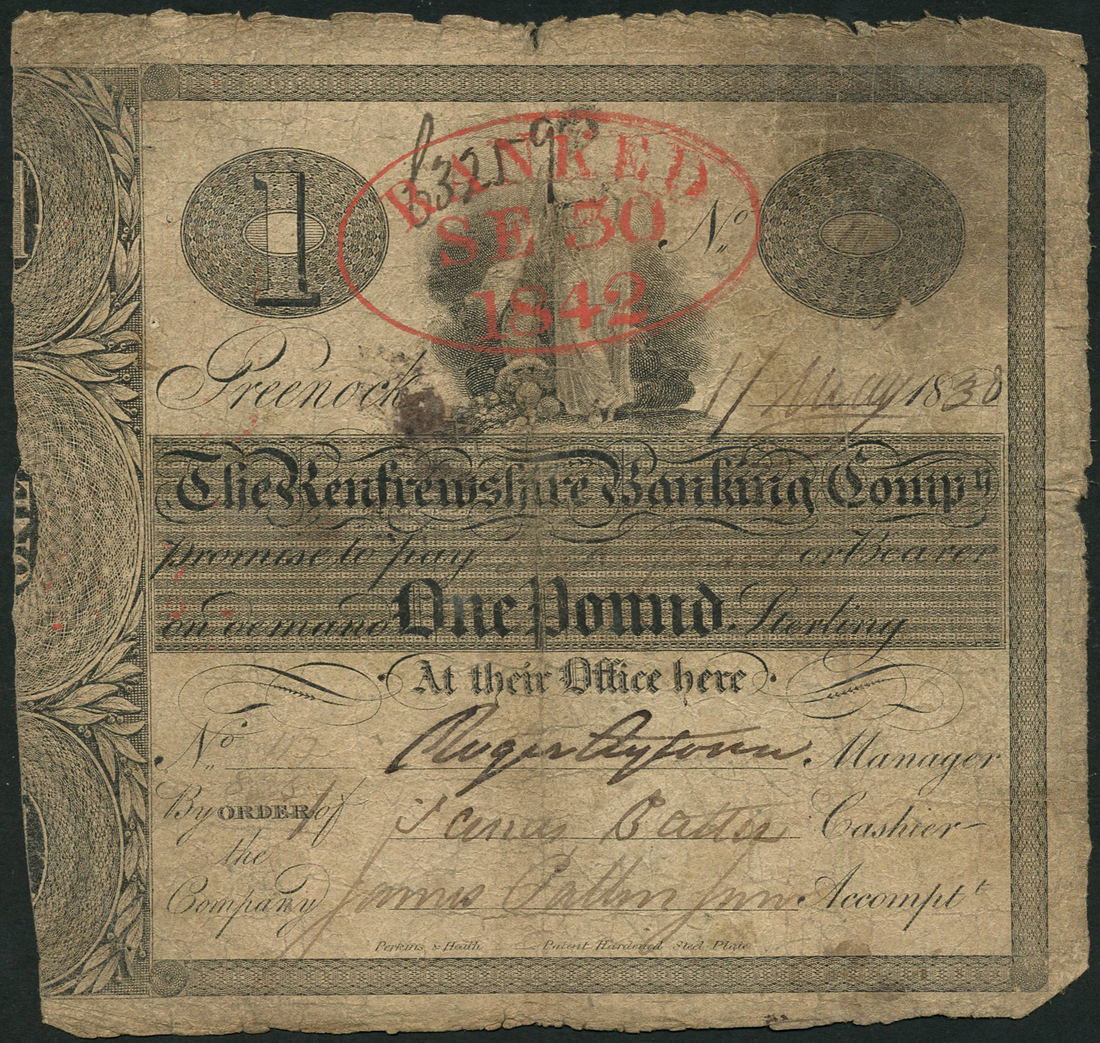 1
ONE
BANKED
SE 30
1842
№
Greenock 17 May 1838
The Renfrewshire Banking Compy
Promise to pay or Bearer
on demand One Pound Sterling
At their Office here
No. Roger Aytoun Manager
By ORDER of James Cashier
the
Company James Junr Accomptt
Perkins & Heath Patent Hardened Steel Plate